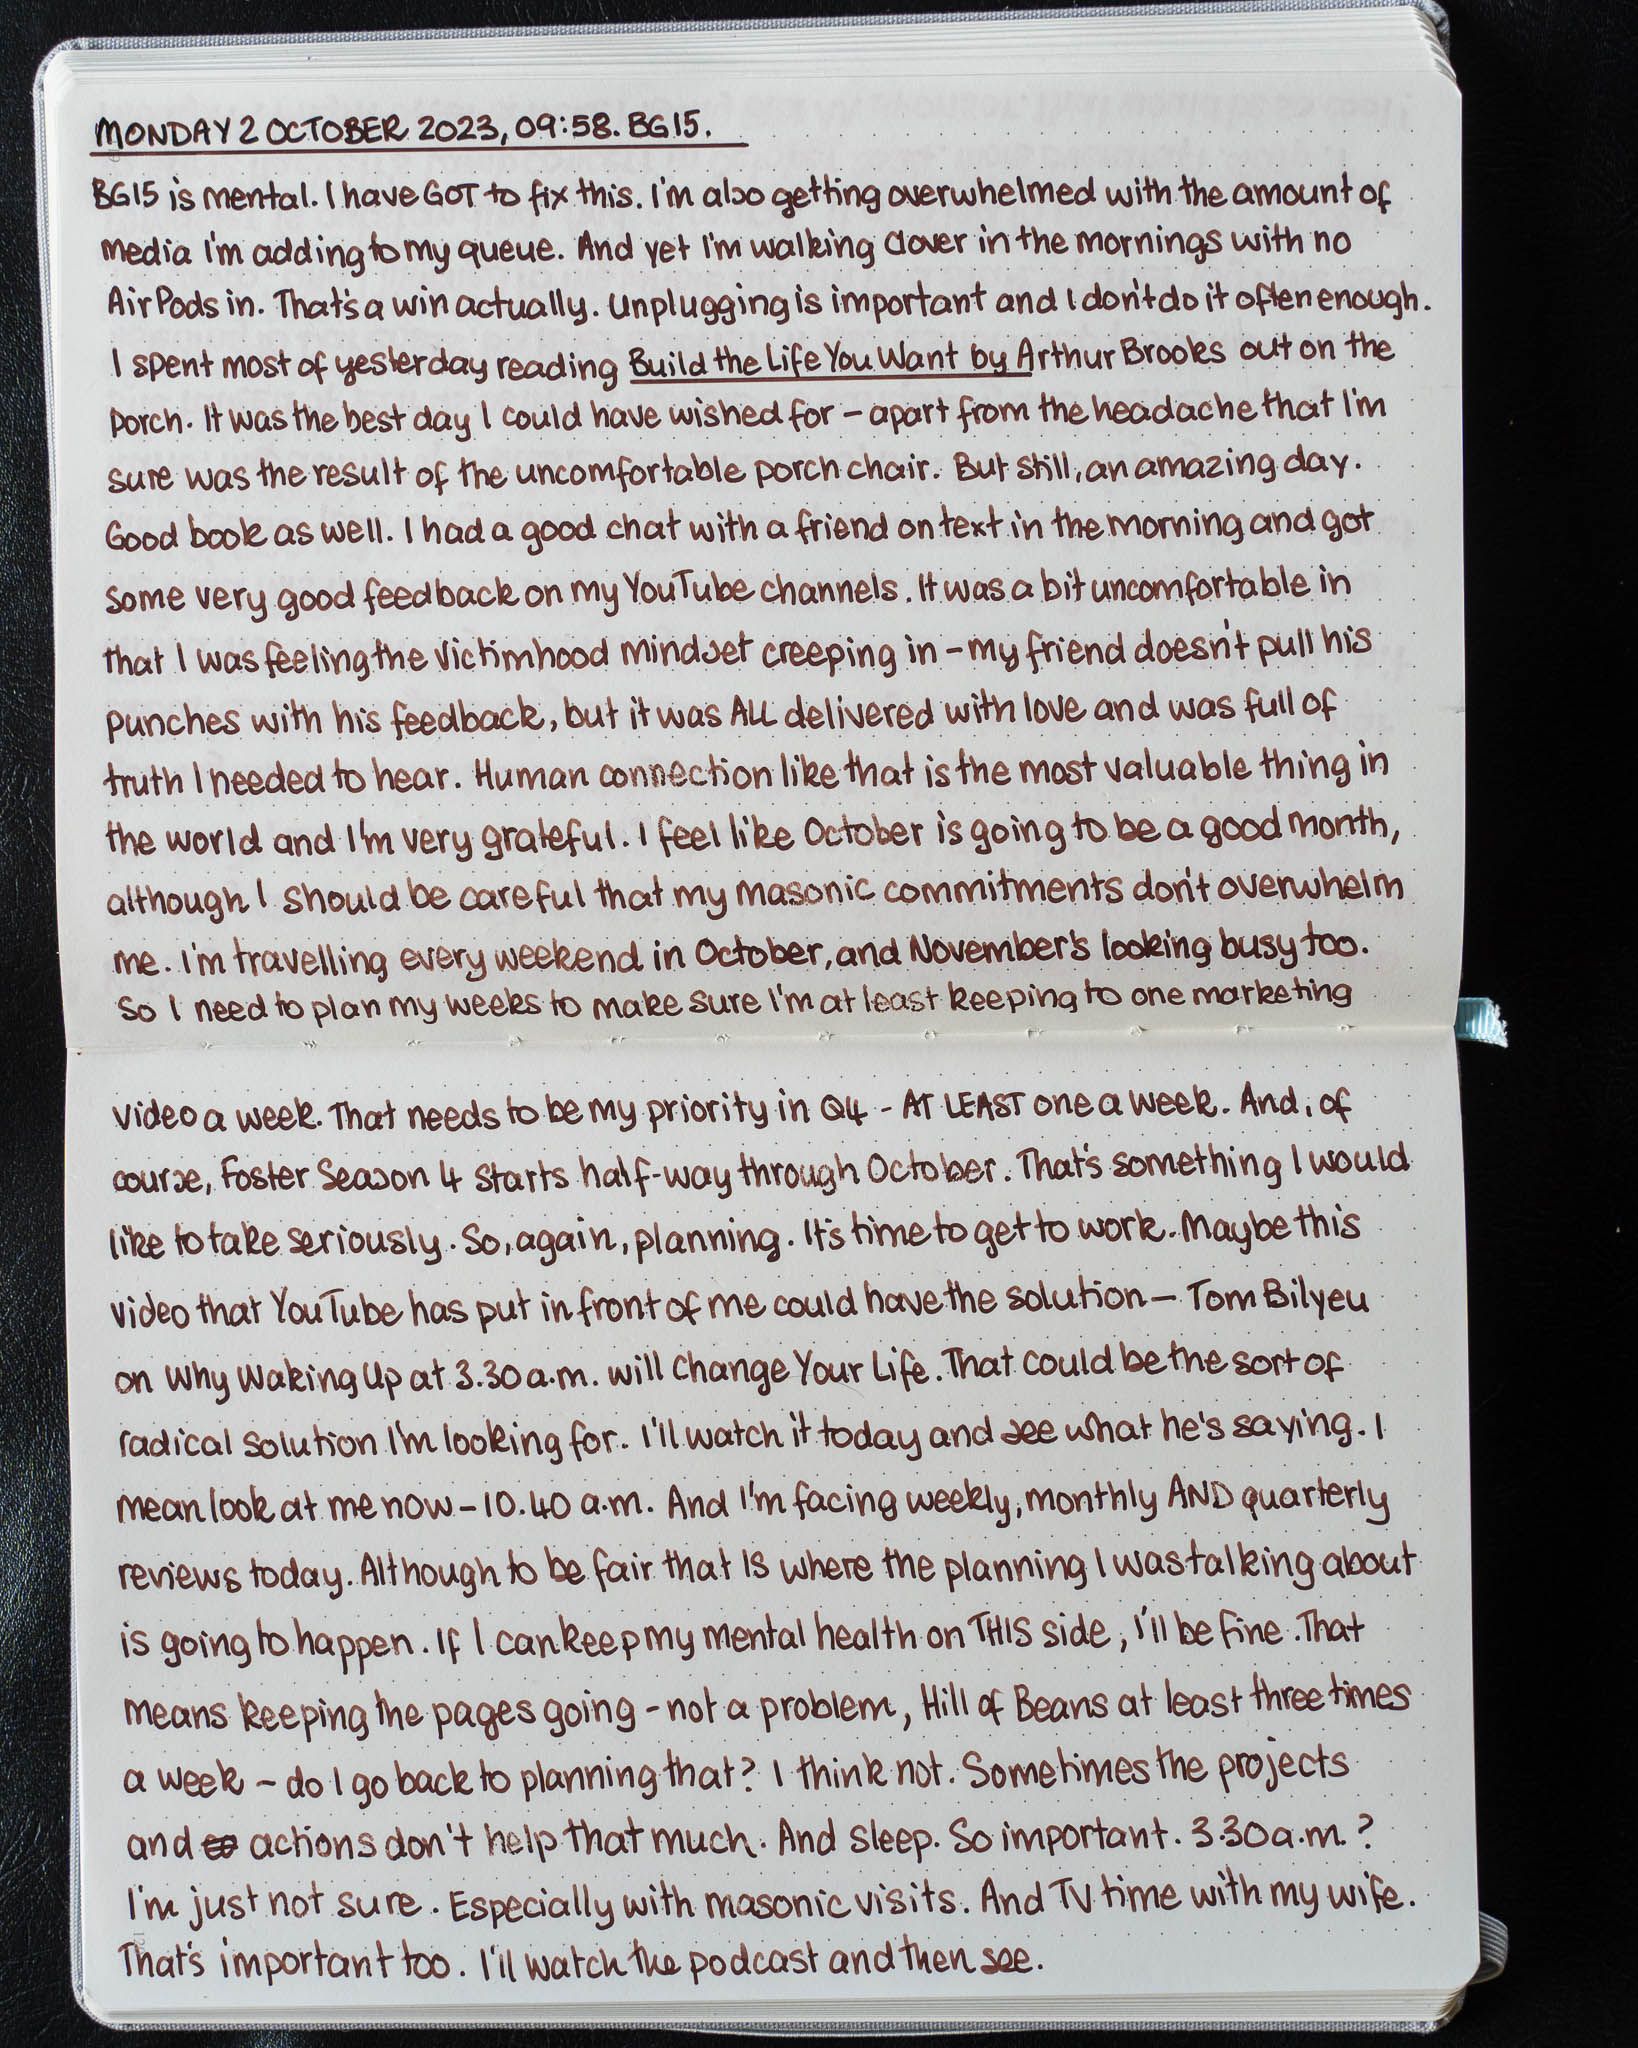 MONDAY 2 OCTOBER 2023, 09:58. BG15.
BG15 is mental. I have GOT to fix this. I'm also getting overwhelmed with the amount of
media I'm adding to my queue. And yet I'm walking Clover in the mornings with no
AirPods in. That's a win actually. Unplugging is important and I don't do it often enough.
I spent most of yesterday reading Build the Life You Want by Arthur Brooks out on the
porch. It was the best day I could have wished for – apart from the headache that I'm
sure was the result of the uncomfortable porch chair. But still, an amazing day.
Good book as well. I had a good chat with a friend on text in the morning and got
some very good feedback on my YouTube channels. It was a bit uncomfortable in
that I was feeling the victimhood mindset creeping in – my friend doesn't pull his
punches with his feedback, but it was ALL delivered with love and was full of
truth I needed to hear. Human connection like that is the most valuable thing in
the world and I'm very grateful. I feel like October is going to be a good month,
although I should be careful that my masonic commitments don't overwhelm
me. I'm travelling every weekend in October, and November's looking busy too.
So I need to plan my weeks to make sure I'm at least keeping to one marketing
video a week. That needs to be my priority in Q4 - AT LEAST one a week. And, of
course, Foster Season 4 starts half-way through October. That's something I would
like to take seriously. So, again, planning. It's time to get to work. Maybe this
video that YouTube has put in front of me could have the solution – Tom Bilyeu
on Why Waking Up at 3.30 a.m. will Change Your Life. That could be the sort of
radical solution I'm looking for. I'll watch it today and see what he's saying. I
mean look at me now – 10.40 a.m. And I'm facing weekly, monthly AND quarterly
reviews today. Although to be fair that IS where the planning I was talking about
is going to happen. If I can keep my mental health on THIS side, I'll be fine. That
means keeping the pages going - not a problem, Hill of Beans at least three times
a week – do I go back to planning that? I think not. Sometimes the projects
and actions don't help that much. And sleep. So important. 3.30 a.m.?
I'm just not sure. Especially with masonic visits. And TV time with my wife.
That's important too. I'll watch the podcast and then see.